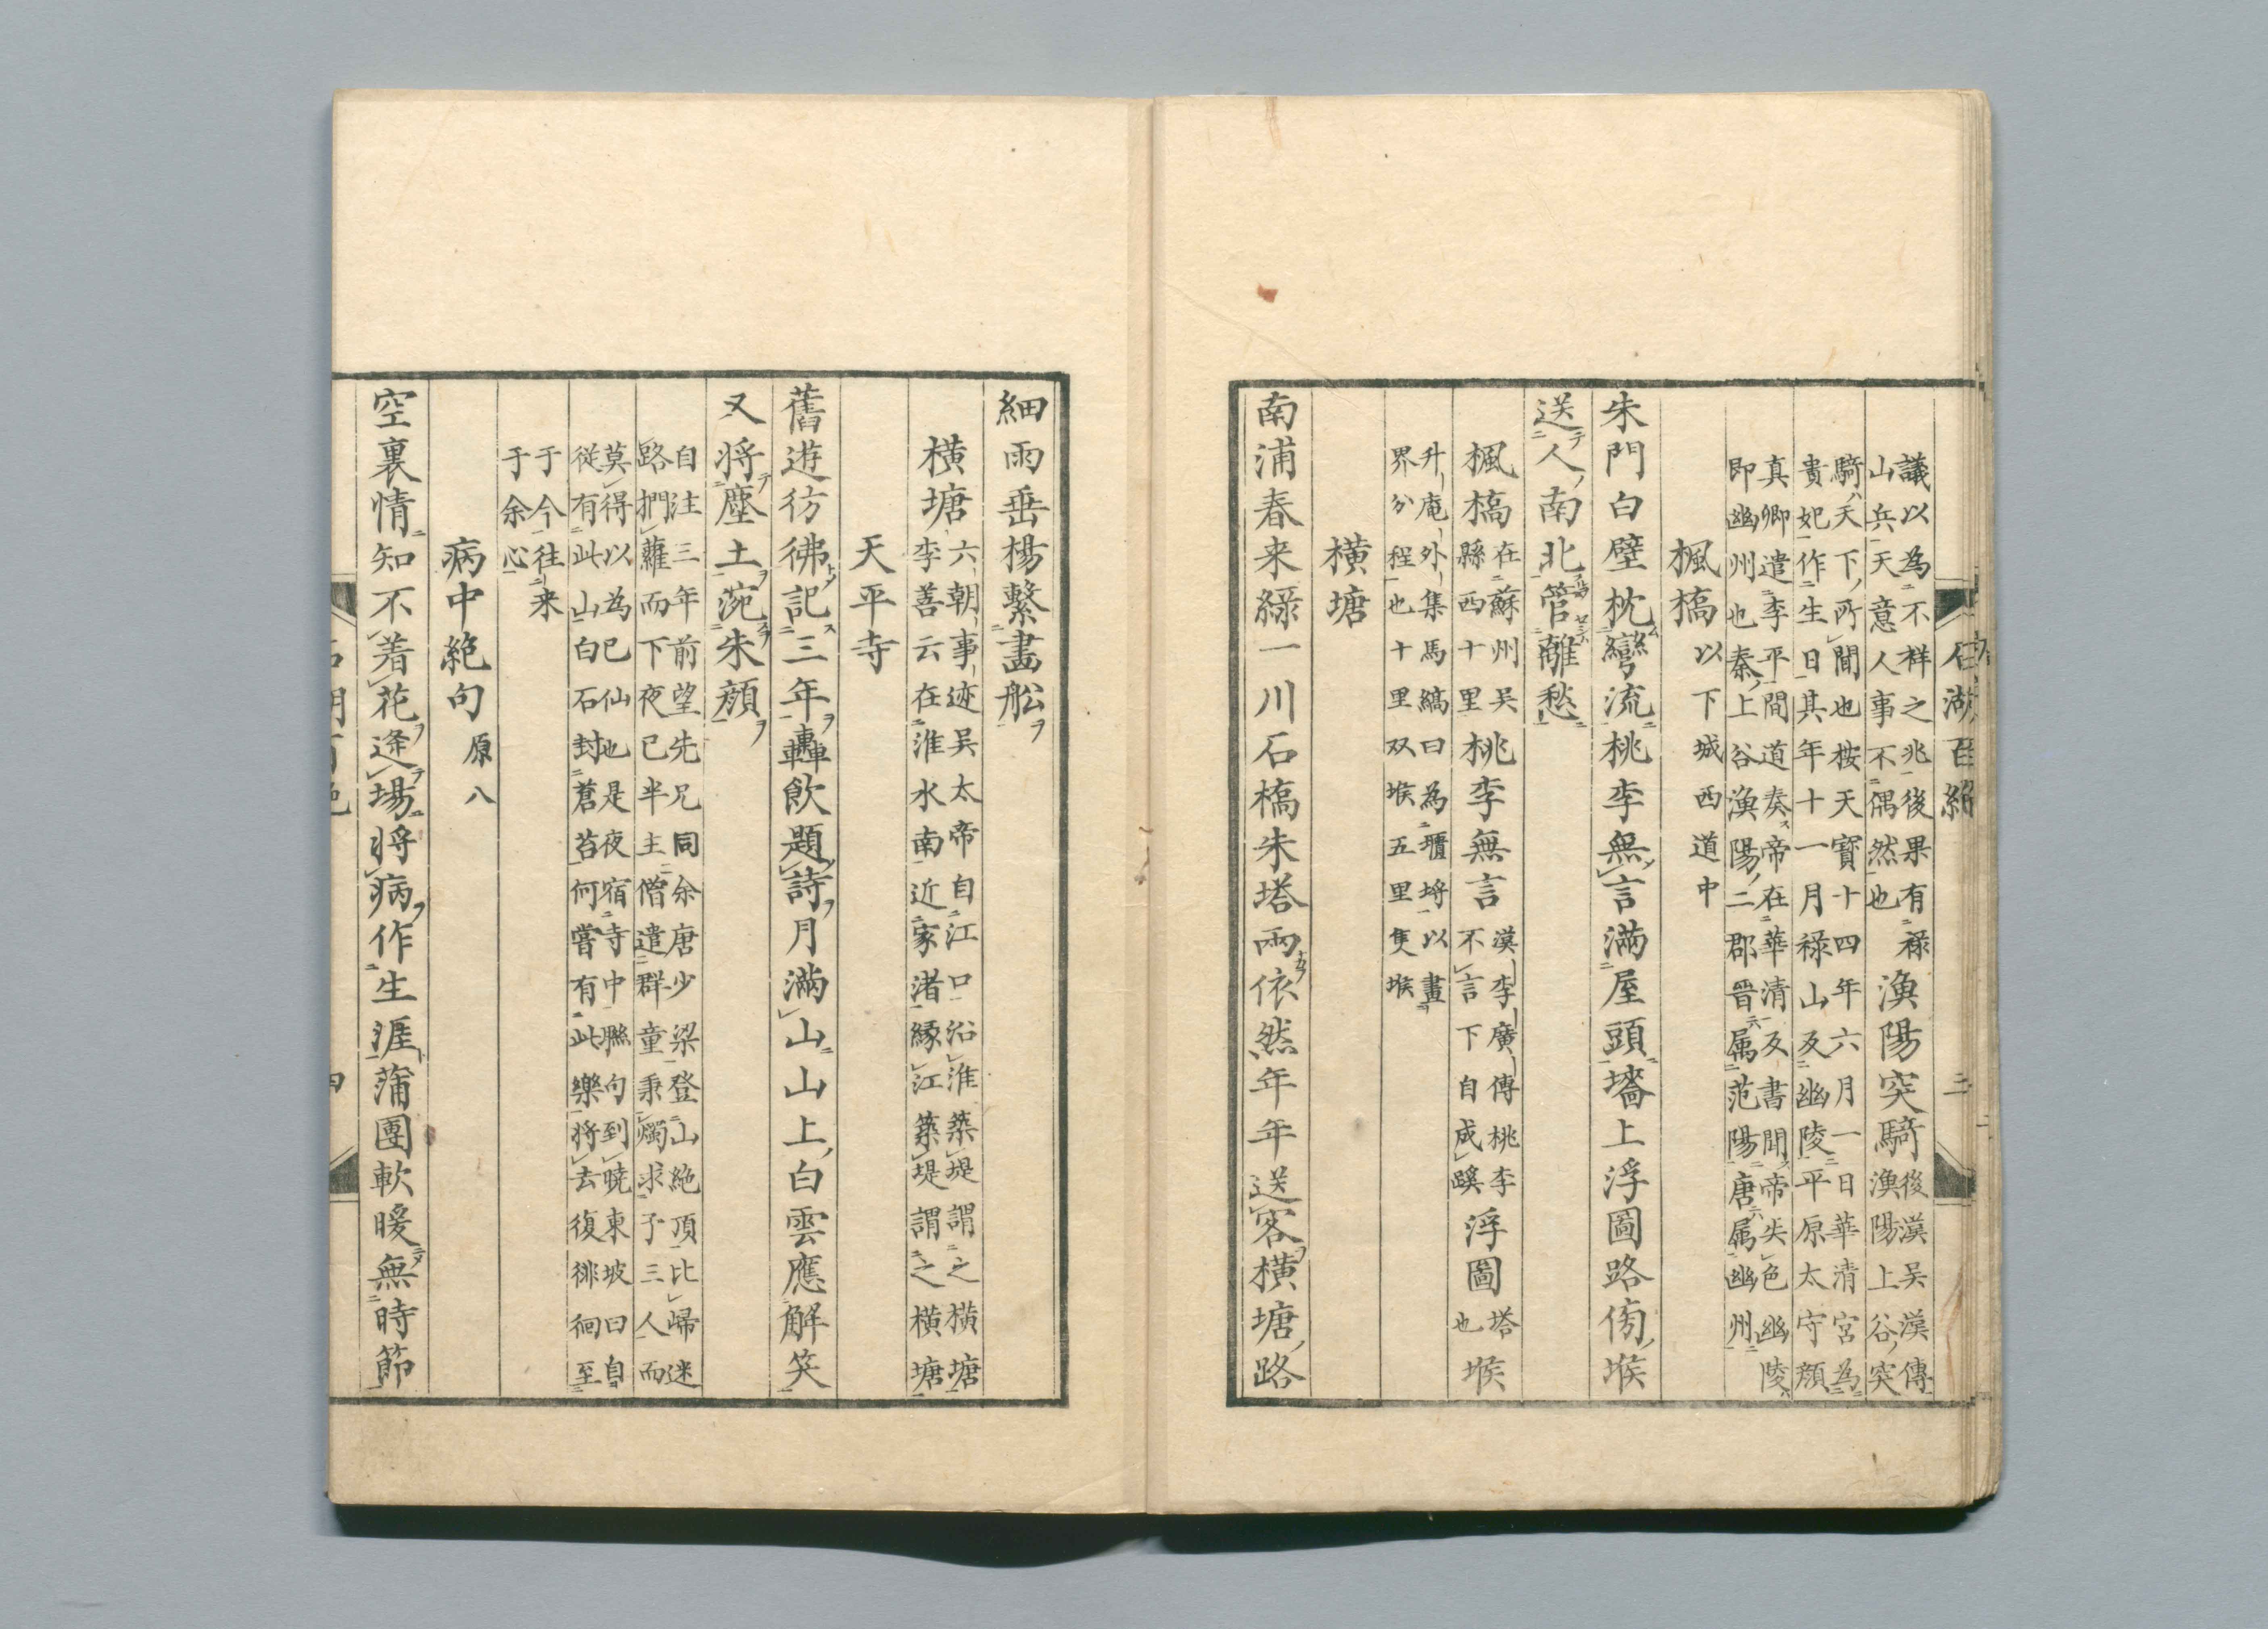 議以為不祥之兆後果有祿
山兵天意人事不偶然也
漁陽突騎
後漢吴漢傳
漁陽上谷突
騎天下所聞也桉天寳十四年六月一日華清宮為
貴妃作生日其年十一月禄山叐幽陵平原太守顔
真卿遣李平間道奏帝在華清叐書聞帝失色幽陵
即幽州也秦上谷漁陽二郡晋属范陽唐属幽州
楓槗
以下城西道中
朱門白壁枕彎流桃李無言滿屋頭墻上浮圖路傍堠
送人南北管離愁
楓槗
在蘇州吴
縣西十里
桃李無言
漢李廣傳桃李
不言下自成蹊
浮圖
塔
也
堠
升庵外集馬縞曰為壥埓以畫
界分程也十里双堠五里隻堠
横塘
南浦春来緑一川石橋朱塔兩依然年年送客横塘路
細雨垂楊繫畵舩
横塘
六朝事迹吴太帝自江口沿淮築堤謂之横塘
李善云在淮水南近家渚緣江築堤謂之横塘
天平寺
舊遊彷彿記三年轟飲題詩月滿山山上白雲應解笑
又将塵土涴朱顔
自注三年前望先兄同余唐少梁登山絶頂比歸迷
路捫蘿而下夜已半主僧遣群童秉燭求予三人而
莫得以為已仙也是夜宿寺中聮句到曉東坡曰自
従有此山白石封蒼苔何嘗有此樂将去復徘徊至
于今往来
于余心
病中絶句
原八
空裏情知不着花逢場将病作生涯蒲團軟暖無時節